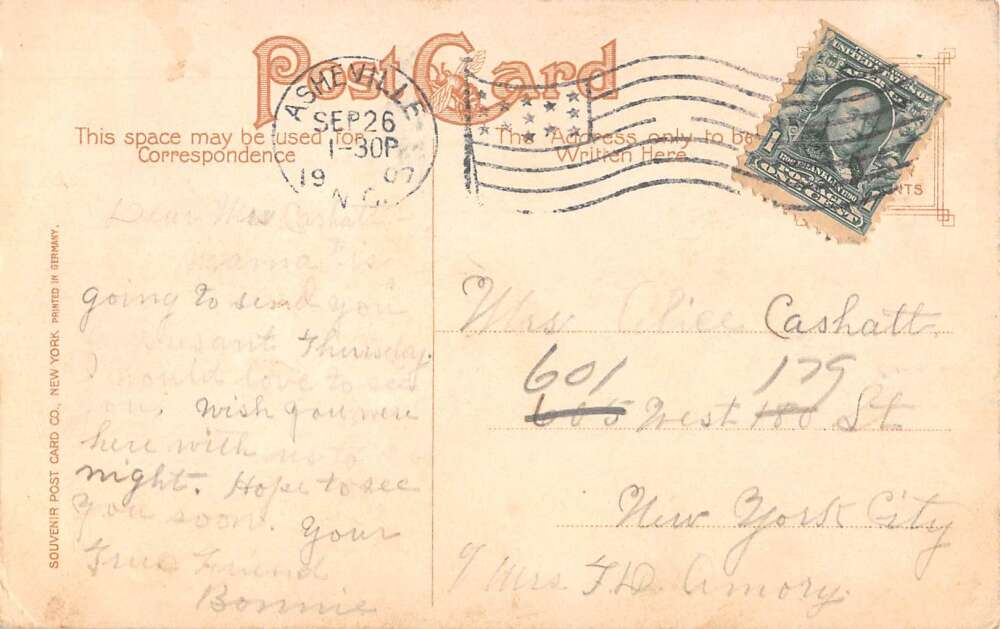 Post Card
This space may be used for
Correspondence
The Address only to be
Written Here
ASHEVILLE
SEP 26
1-30P
1907
N.C.
UNITED STATES OF
1 1
ONE CENT
Dear Mrs Cashatt
Mama is
going to send you
Thursday.
I would love to see
you, wish you were
here with us to
night. Hope to see
you soon. Your
True Friend
Bonnie
Mrs Alice Cashatt
601 179
605 West 180 St.
New York City
c/ Mrs F.D. Amory.
SOUVENIR POST CARD CO., NEW YORK PRINTED IN GERMANY.